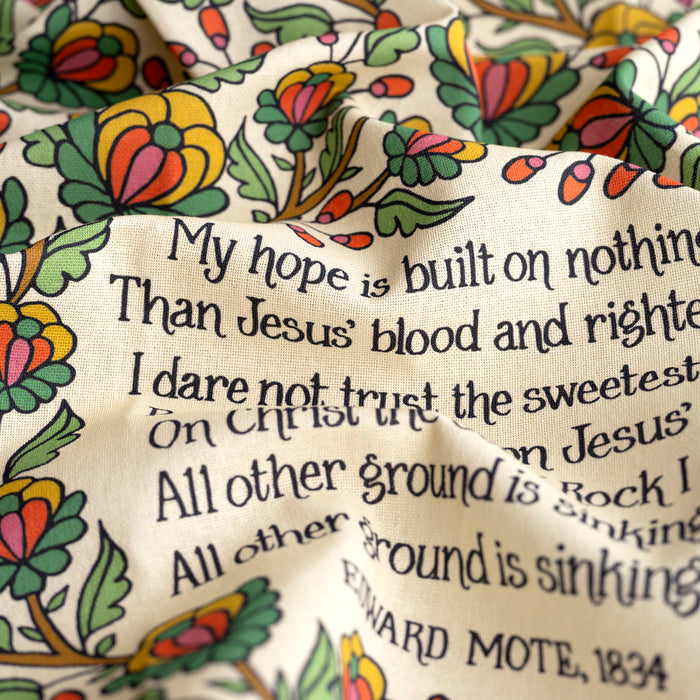 My hope is built on nothin
Than Jesus' blood and righte
I dare not trust the sweetest
on Jesus'
On Christ the Rock I
All other ground is sinking
All other ground is sinking
EDWARD MOTE, 1834